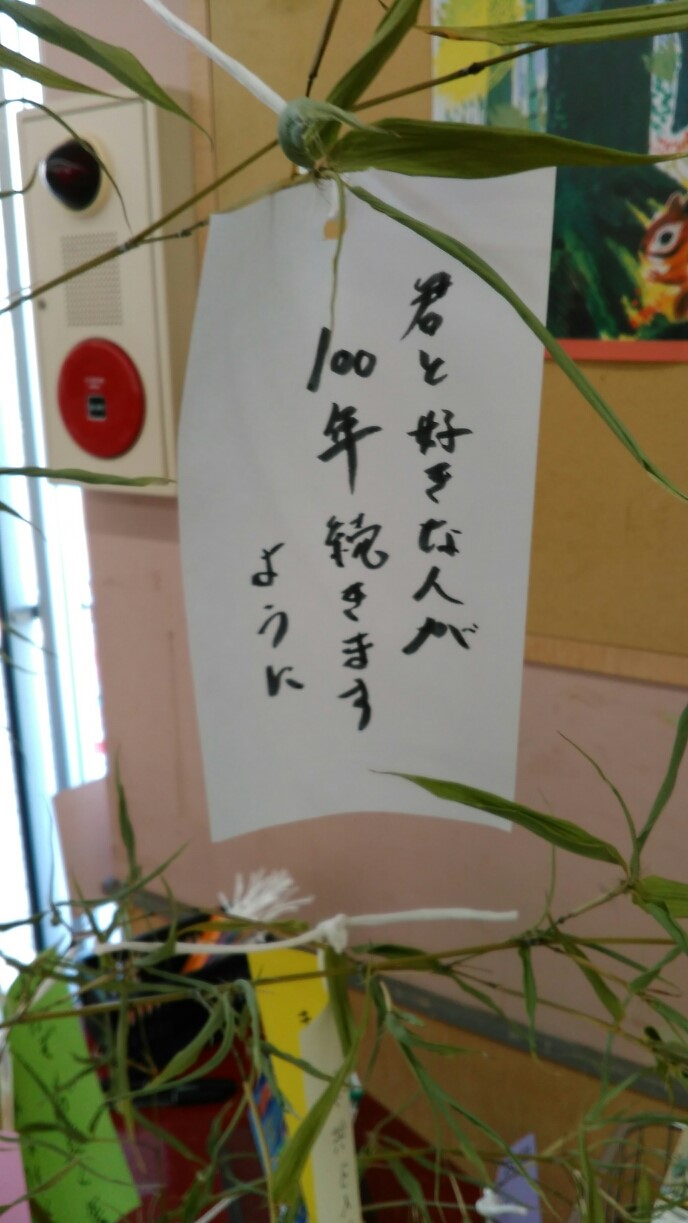 君と好きな人が
100年続きます
ように